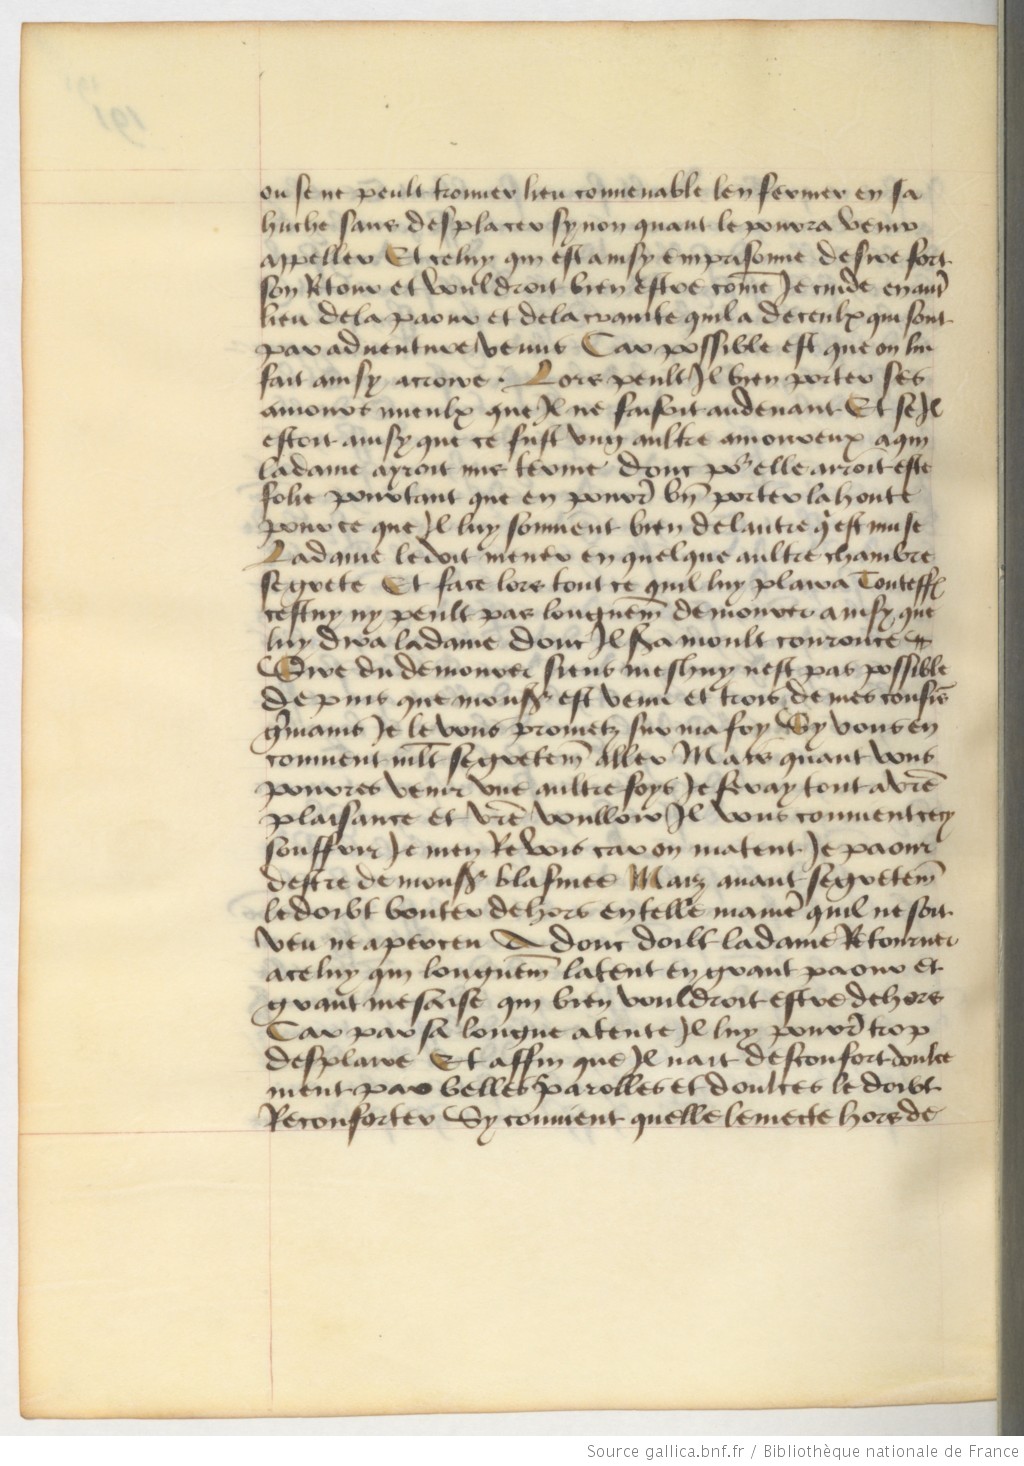 ou se ne peult trouver lieu convenable len fermer en sa
huche sans desplacer sy non quant le pourra venir
appeller Et celuy qui est ainsy emprisonne desire fort
son Retour et vouldroit bien estre come Je cuide en aut
lieu de la paour et de la crainte quil a de ceulx qui sont
par adventure venus Car possible est que on luy
fait ainsy acroire . Lors peult Il bien porter ses
amours mieulx que Il ne faisoit au devant Et se Il
estoit ainsy que ce fust ung aultre amoureux a qui
la dame ayroit mis terme donc por elle arroit este
folie pourtant que en pourr bn porter la honte
pour ce que Il luy souvient bien de lautre q est muse
La dame le doit mener en quelque aultre chambre
segrete Et face lors tout ce quil luy plaira Touteff
cestuy ny peult pas longuem demourer ainsy que
luy dira la dame donc Il sa moult couronce
Sire du demourer siens meshuy nest pas possible
de puis que mons est venu et trois de mes cousis
gmains Je le vous prometz sur ma foy Sy vous en
convient mlt segretem aller Mais quant vous
pourres venir une aultre foys Je feray tout a vre
plaisance et vre voulloir Il vous convient cecy
souffrir Je men Revois car on matent Je paour
destre de mons blasmee Maiz avant segretem
le doibt bouter dehors en telle manie quil ne soit
veu ne aperceu A donc doibt la dame Retourner
a celuy qui longuem latent en grant paour et
grant mesaise qui bien vouldroit estre dehors
Car par sa longue atente Il luy pourr trop
desplaire Et affin que Il nait desconfort doulce
ment par belles parolles et doulces le doibt
Reconforter Sy convient quelle le mecte hors de
Source gallica.bnf.fr / Bibliothèque nationale de France